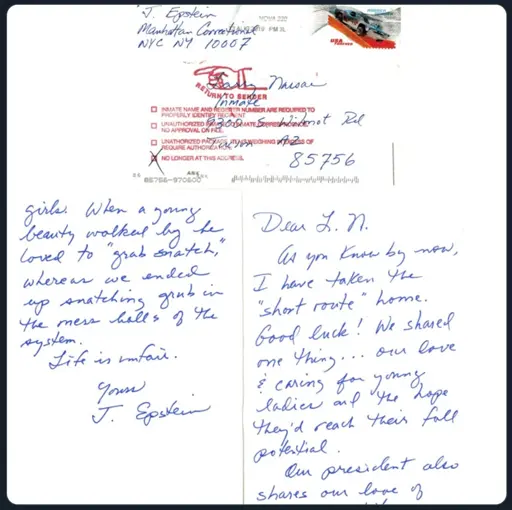 J. Epstein
Manhattan Correctional
NYC NY 10007
PM 2L
USA
FOREVER
Larry Nassar
Inmate
9300 S. Wilmot Rd
Tucson AZ
85756
RETURN TO SENDER
INMATE NAME AND REGISTER NUMBER ARE REQUIRED TO
PROPERLY IDENTIFY RECIPIENT
UNAUTHORIZED
NO APPROVAL ON FILE.
UNAUTHORIZED OF
REQUIRE
X NO LONGER AT THIS ADDRESS.
85756-970600
Dear L. N.
As you know by now,
I have taken the
"short route" home.
Good luck! We shared
one thing... our love
& caring for young
ladies and the hope
they'd reach their full
potential.
Our president also
shares our love of
girls. When a young
beauty walked by he
loved to "grab snatch,"
whereas we ended
up snatching grub in
the mess halls of the
system.
Life is unfair.
Yours
J. Epstein